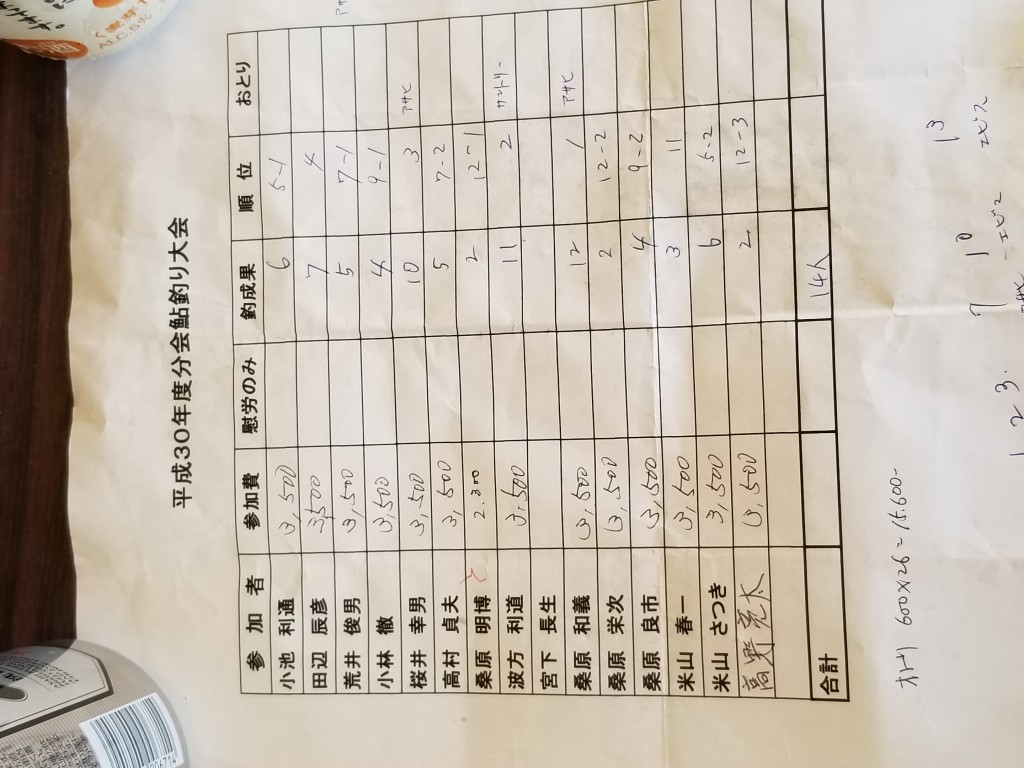 平成30年度分会鮎釣り大会
参加者 参加費 慰労のみ 釣成果 順位 おとり
小池 利通 3,500 6 5-1
田辺 辰彦 3,500 7 4
荒井 俊男 3,500 5 7-1
小林 徹 3,500 4 9-1
桜井 幸男 3,500 10 3 アサヒ
高村 貞夫 3,500 5 7-2
桑原 明博 2.300 2 12-1
波方 利道 3,500 11 2 サントリー
宮下 長生
桑原 和義 3,500 12 1 アサヒ
桑原 栄次 3,500 2 12-2
桑原 良市 3,500 4 9-2
米山 春一 3,500 3 11
米山 さつき 3,500 6 5-2
高野 亮太 3,500 2 12-3
合計 14人
オトリ 600×26=15.600-
1 2 3. 7 10 13
アサヒ エビス エビス
ALC.5%